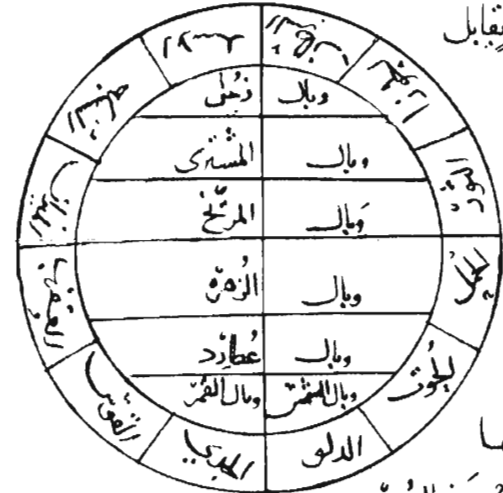 السرطان
الجوزا
الثور
الحمل
الحوت
الدلو
الجدي
القوس
العقرب
الميزان
السنبله
الاسد
وبال زُحل
وبال المشترى
وَبال المرّيخ
وبال الزُهرة
وبال عُطارد
وبال الشمس وبال القمر